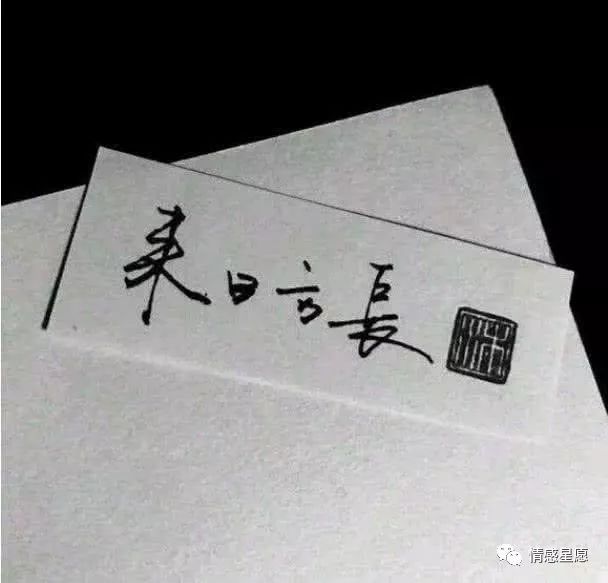 来日方長
情感星愿